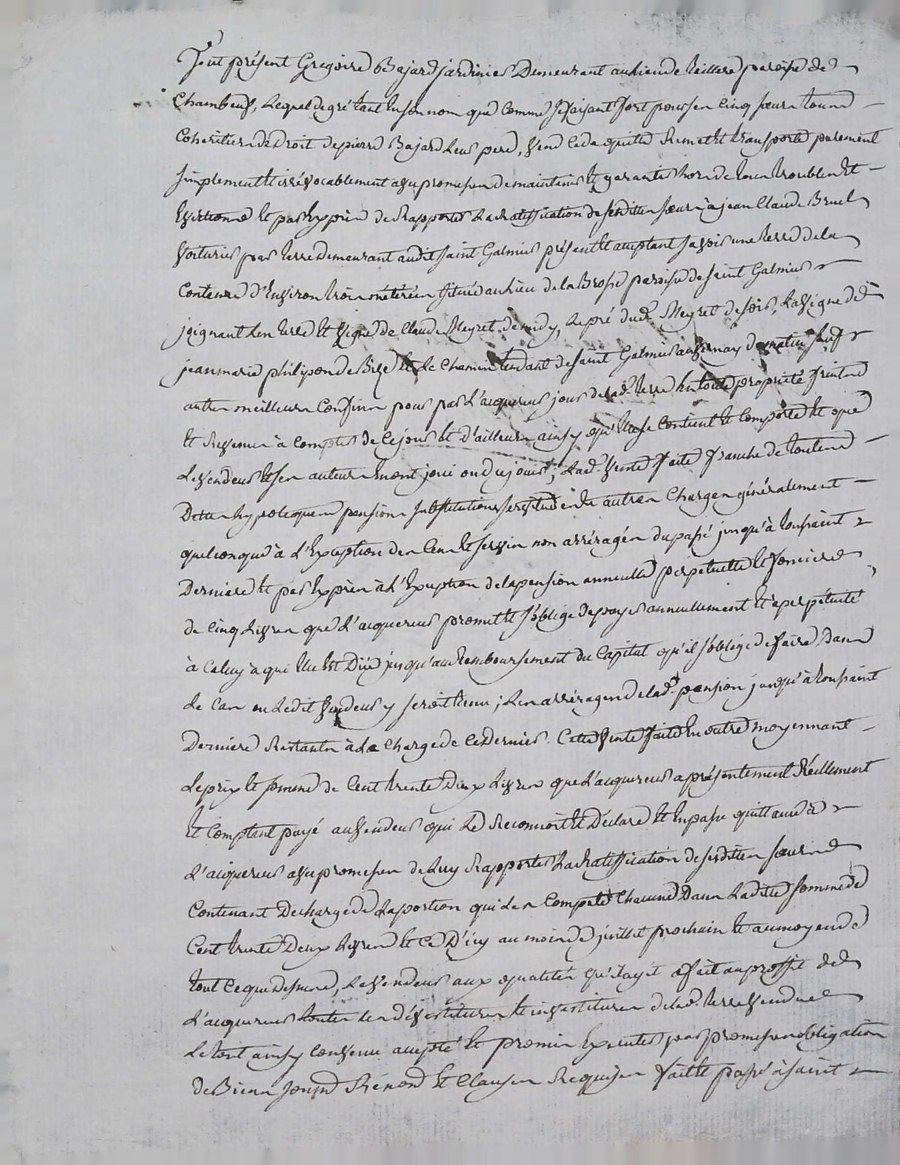 fut présent Gregoire Bajard jardinier Demeurant au lieu de paroisse de
Chambeuf, Lequel de gré tant en son nom que comme se faisant fort pour ses cinq sœurs toures
Coheritieres de Droit de pierre Bajard leur pere, vend cede quitte Remet et transporte purement
simplement et irrévocablement avec promesse de maintenir et garantir hors de tous troubles et
Evictions et par Exprès de Rapporter la Ratiffication de sesdites sœurs à jean Claude Bruel
voiturier par terre demeurant audit saint Galmier présent et acceptant savoir une terre de la
Contenue d'Environ trois meterées située au lieu de la Brosse paroisse de saint Galmier
joignant les terre et vigne de Claude Meyret de midy, le pré dud. Meyret de soir, la vigne de
jean marie philipon de Bize et le chemin tendant de saint Galmier de matin sauf
autres meilleurs Confins pour par l'acquereur jouir de lad. terre en toute propriété fruits
et Revenus à compter de ce jour et d'ailleurs ainsy qu'elle se Contient et Comporte et que
le vendeur et ses auteurs en ont joui ou du jouir; lad. vente faite franche de toutes
Dettes hypoteques pensions substitutions servitudes et autres Charges généralement
quelconque à l'Exception des Cens et servis non arréragés du passé jusqu'à toussaint
Derniere et par Exprès à l'Exception de la pension annuelle perpetuelle et fonciere
de cinq Livres que l'acquereur promet et s'oblige de payer annuellement et à perpetuité
à Celuy à qui elle est Düe jusqu'au Remboursement du Capital qu'il s'oblige de faire dans
le Cas ou Ledit vendeur y seroit tenu; les arrérages de lad. pension jusqu'à toussaint
Derniere Restants à la charge de ce dernier. Cette vente faite en outre moyennant
le prix et somme de Cent trente Deux Livres que l'acquereur a présentement Réellement
et Comptant payé au vendeur qui le Reconnoit et Déclare et en passe quittance à
l'acquereur avec promesse de luy Rapporter la Ratiffication de sesdites sœurs
Contenant Décharge de la portion qui les Compete Chacune Dans Ladite somme de
Cent trente Deux Livres et ce D'icy au mois de juillet prochain et au moyen de
tout ce que dessus, le vendeur aux qualités qu'il agit a fait au proffit de
l'acquereur toutes les dévestitures et investitures de lad. terre vendue
Le tout ainsy Convenu accepté et promis Executer par promesse obligation
de Biens soums Rénon et Clauses Requises fait et passé à saint